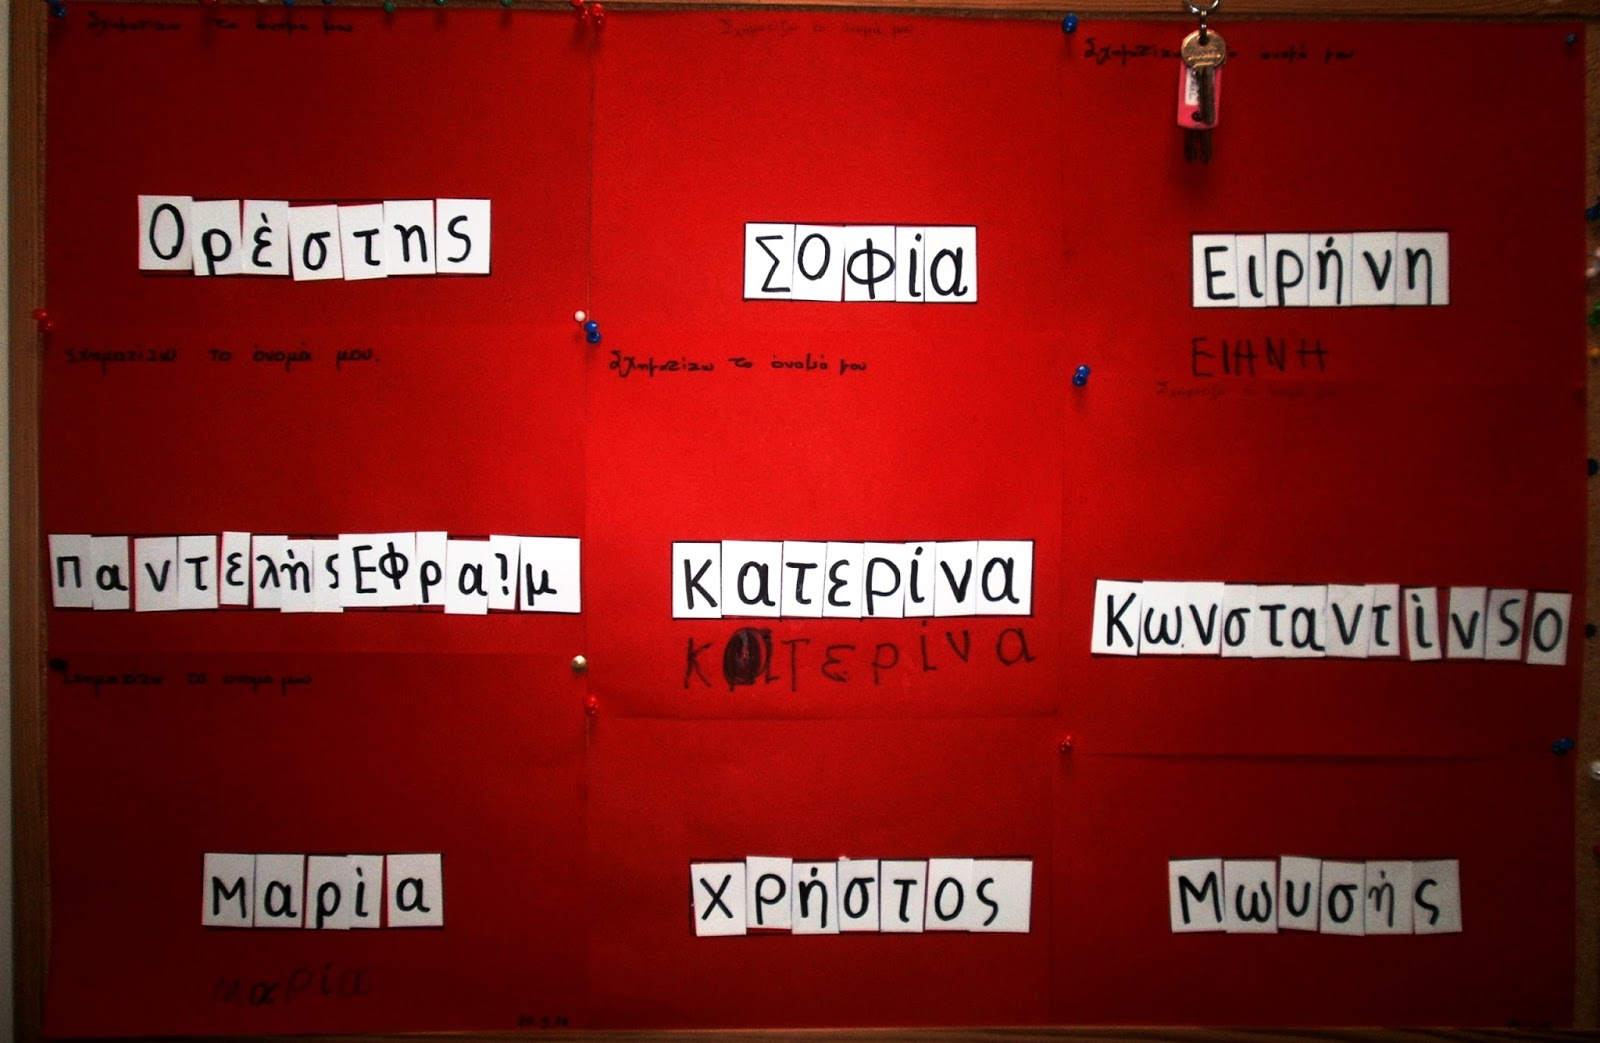 Σχηματίζω το όνομά μου
Ορέστης
Σχηματίζω το όνομά μου
Σοφία
Σχηματίζω το όνομά μου
Ειρήνη
ΕΙΗΝΗ
Σχηματίζω το όνομά μου.
ΠαντελήςΕφραϊμ
Σχηματίζω το όνομά μου
Κατερίνα
Κατερίνα
Σχηματίζω το όνομά μου
Κωνσταντίνςο
Σχηματίζω το όνομά μου
Μαρία
Μαρία
Χρήστος
Μωυσής